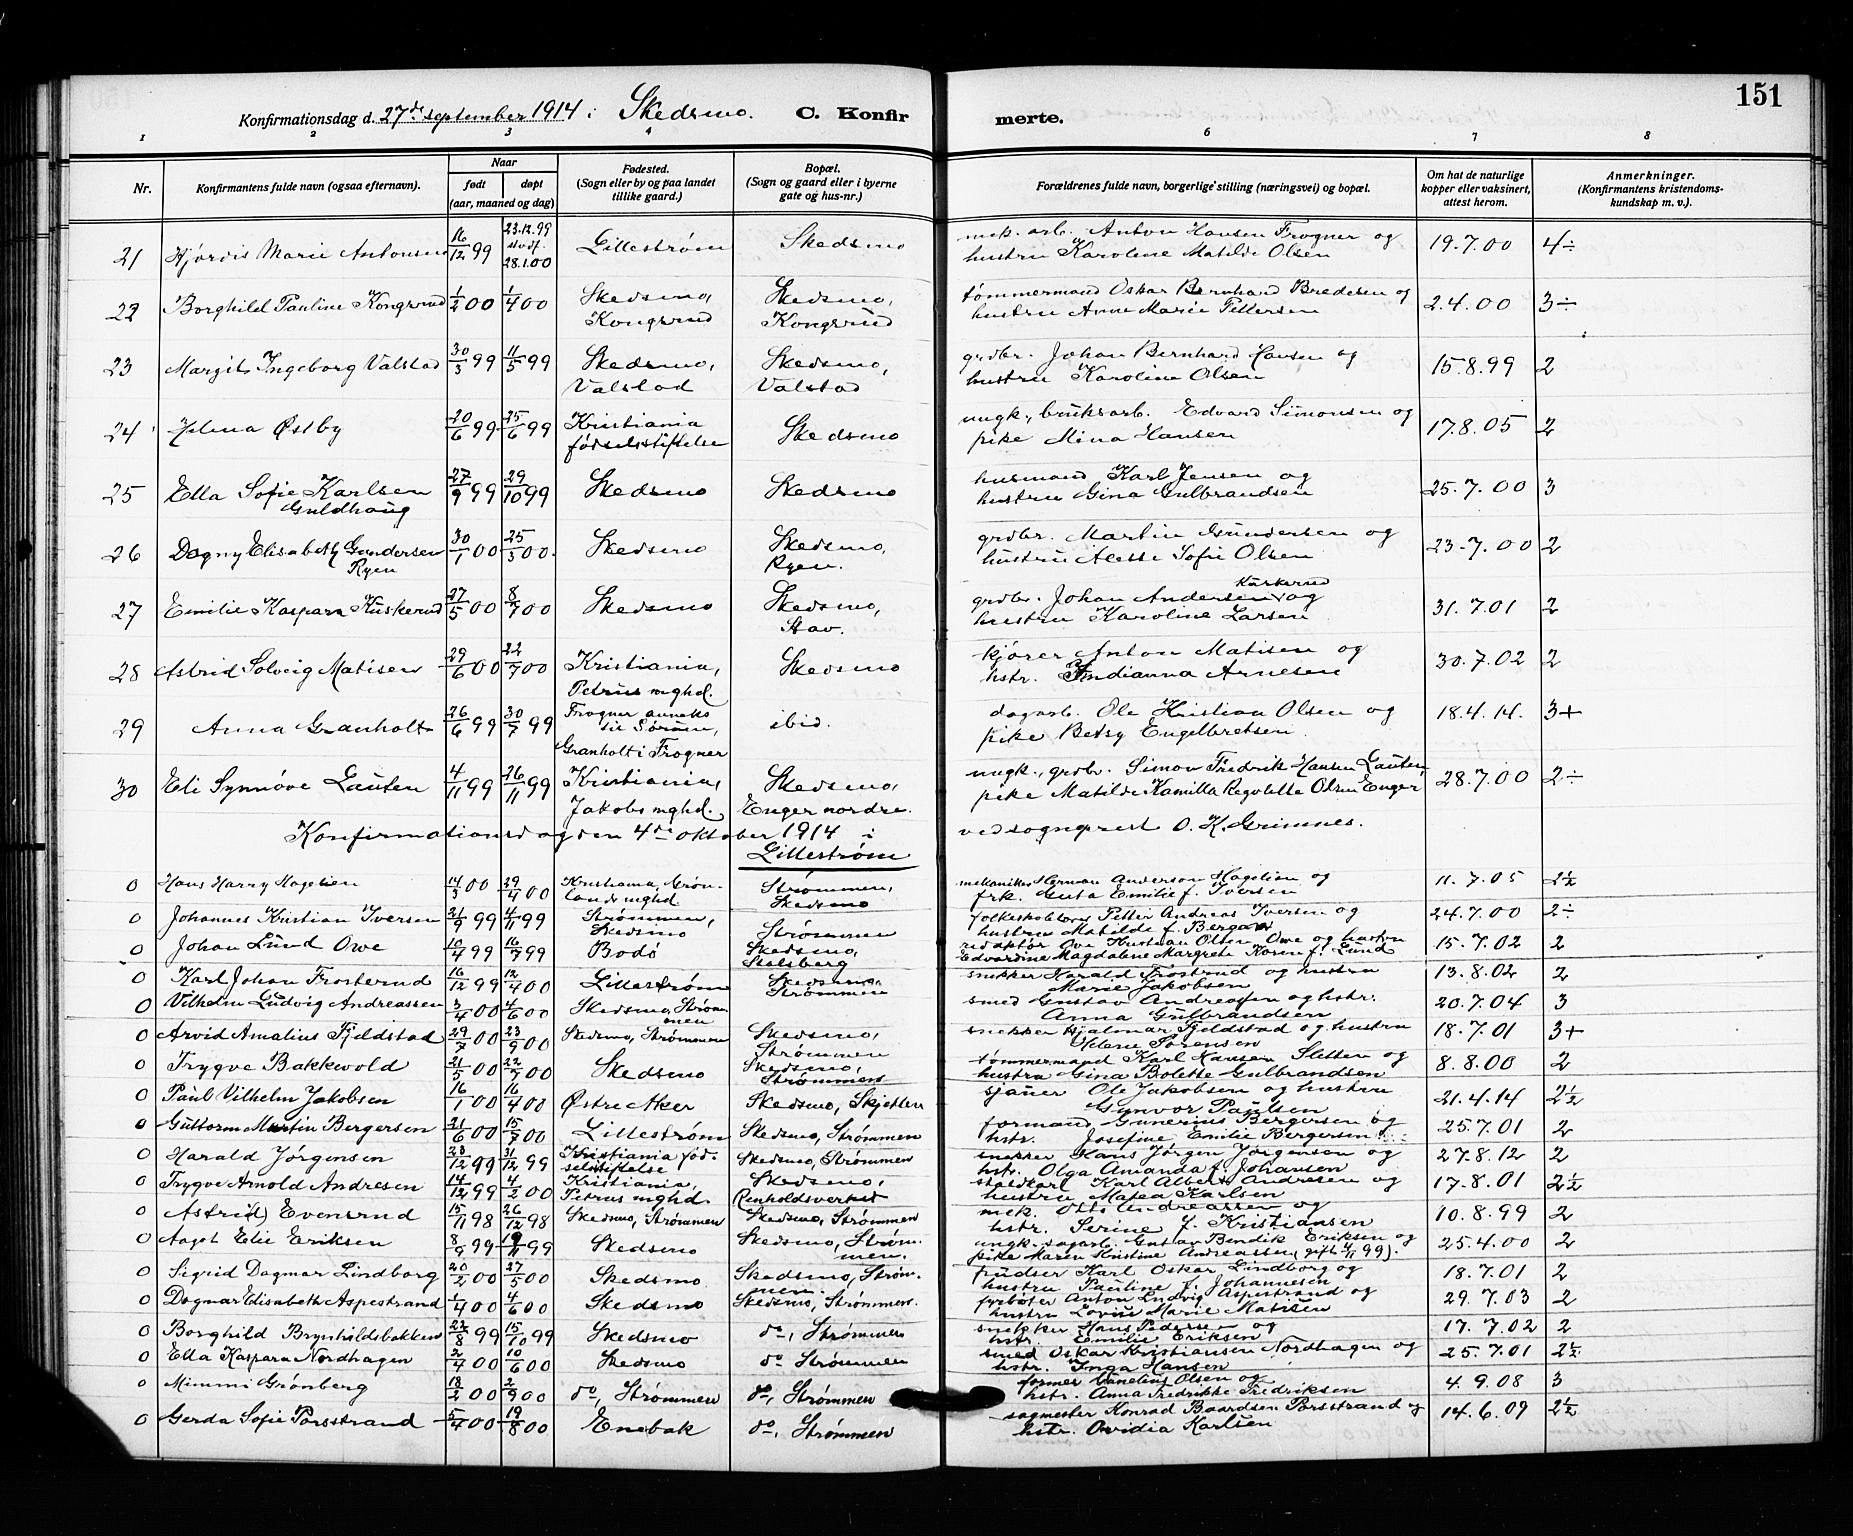 151
Konfirmationsdag d. 27de september 1914 i Skedsmo. C. Konfirmerte.
1 2 3 4 6 7 8
Nr. Konfirmantens fulde navn (ogsaa efternavn). Naar født døpt (aar, maaned og dag) Fødested. (Sogn eller by og paa landet tillike gaard.) Bopæl. (Sogn og gaard eller i byerne gate og hus-nr.) Forældrenes fulde navn, borgerlige stilling (næringsvei) og bopæl. Om hat de naturlige kopper eller vaksinert, attest herom. Anmerkninger. (Konfirmantens kristendoms-kundskap m. v.).
21 Hjørdis Marie Antonsen 16/12 99 23.12.99 28.1.00 Lillestrøm Skedsmo mek. arb. Anton Hansen Frogner og hustru Karolene Matilde Olsen 19.7.00 4÷
22 Borghild Pauline Kongsrud 1/2 00 1/4 00 Skedsmo, Kongsrud Skedsmo, Kongsrud tømmermand Oskar Bernhard Bredesen og hustru Anne Marie Pettersen 2.4.00 3÷
23 Margit Ingeborg Valstad 30/3 99 11/5 99 Skedsmo, Valstad Skedsmo, Valstad grdbr. Johan Bernhard Hansen og hustru Karoline Olsen 15.8.99 2
24 Helena Østby 20/6 99 25/6 99 Kristiania fødselsstiftelse Skedsmo ungk., bruksarb. Edvard Simonsen og pike Mina Hansen 17.8.05 2
25 Ella Sofie Karlsen Guldhaug 27/9 99 29/10 99 Skedsmo Skedsmo husmand Karl Jensen og hustru Gina Gulbrandsen 25.7.00 3
26 Dagny Elisabeth Gundersen Ryen 30/1 00 25/3 00 Skedsmo Skedsmo, Ryen. grdbr. Martin Gundersen og hustru Alette Sofie Olsen 23.7.00 2
27 Emilie Kaspara Kuskerud 27/5 00 8/7 00 Skedsmo Skedsmo, Stav. grdbr. Johan Andersen Kuskerud og hustru Karoline Larsen 31.7.01 2
28 Astrid Solveig Matisen 29/6 00 22/7 00 Kristiania, Petrus mghd. Skedsmo kjører Anton Matisen og hstr. Indianna Arnesen 30.7.02 2
29 Anna Granholt 26/6 99 30/7 99 Frogner anneks til Sørum, Granholt i Frogner ibid. dagarb. Ole Kristian Olsen og pike Betsy Engelbretsen 18.4.14. 3+
30 Eli Synnøve Lauten 4/11 99 26/11 99 Kristiania, Jakobs mghd. Skedsmo, Enger nordre. ungk., grdbr. Simon Fredrik Hansen Lauten, pike Matilde Kamilla Regolette Olsen Enger 28.7.00 2÷
Konfirmationsdag den 4de oktober 1914 i Lillestrøm ved sogneprest O. K. Grimnes.
0 Hans Harry Hagelien 14/3 00 29/4 00 Kristiania, Grønlands mghd. Strømmen, Skedsmo mekaniker Herman Anderson Hagelian og frk. Guta Emilie f. Iversen 11.7.05 2½
0 Johannes Kristian Iversen 21/9 99 4/11 99 Strømmen, Skedsmo Strømmen folkeskolelærer Petter Andreas Iversen og hustru Matilde f. Berg 24.7.00 2÷
0 Johan Lund Owe 10/4 99 16/7 99 Bodø Skedsmo, Stalsberg redaktør Ove Kristian Olsen Owe og hustru Edvardine Magdalene Margrete Kosen f. Lund 15.7.02 2
0 Karl Johan Frosterud 16/12 99 12/4 00 Lillestrøm Skedsmo, Strømmen snekker Harald Frostrud og hustru Marie Jakobsen 13.8.02 2
0 Vilhelm Ludvig Andreassen 3/4 00 4/6 00 Skedsmo, Strømmen smed Gustav Andreasen og hstr. Anna Gulbrandsen 20.7.04 3
0 Arvid Amalius Fjeldstad 29/7 00 23/9 00 Skedsmo, Strømmen Skedsmo, Strømmen snekker Hjalmar Fjeldstad og hustru Helene Sørensen 18.7.01 3+
0 Trygve Bakkevold 21/5 00 22/7 00 Skedsmo Skedsmo, Strømmen tømmermand Karl Hansen Sletten og hustru Gina Bolette Gulbrandsen 8.8.00 2
0 Paul Vilhelm Jakobsen 16/1 00 16/4 00 Østre Aker Skedsmo, Skjetten sjauer Ole Jakobsen og hustru Gunvor Paulsen 21.4.14 2½
0 Guttorm Martin Bergersen 21/6 00 15/7 00 Lillestrøm Skedsmo, Strømmen formand Gunerius Bergersen og hstr. Josefine Emilie Bergersen 25.7.01 2
0 Harald Jørgensen 20/12 99 31/12 99 Kristiania fødselsstiftelse Skedsmo, Strømmen snekker Hans Jørgen Jørgensen og hstr. Olga Amanda f. Johansen 27.8.12 2
0 Trygve Arnold Andresen 14/12 99 4/2 00 Kristiania, Petrus mghd. Skedsmo, Renholdsverket staldkarl Karl Albert Andresen og hustru Matea Karlsen 17.8.01 2½
0 Astrid Evensrud 15/11 98 26/12 98 Skedsmo, Strømmen Skedsmo, Strømmen mek. Otto Andreassen og hstr. Serine f. Kristiansen 10.8.99 2
0 Aagot Elie Eriksen 8/9 99 19/11 99 Skedsmo Skedsmo, Strømmen. ungk. sagarb. Gustav Bendik Eriksen og pike Maren Kristine Andreassen (gift 4/11 99). 25.4.00 2
0 Sigrid Dagmar Lindborg 20/2 00 27/5 00 Skedsmo Skedsmo, Strømmen. pudser Karl Oskar Lindborg og hustru Pauline f. Johannesen 18.7.01 2
0 Dagmar Elisabeth Aspestrand 1/4 00 4/6 00 Skedsmo Skedsmo, Strømmen. fyrbøter Anton Ludvig Aspestrand og hustru Lovise Marie Matisen 29.7.03 2
0 Borghild Brynhildsbakken 22/8 99 15/10 99 Skedsmo do, Strømmen snekker Hans Pedersen og hstr. Emilie Eriksen 17.7.02 2
0 Ella Kaspara Nordhagen 2/4 00 10/6 00 Skedsmo do Strømmen smed Oskar Kristiansen Nordhagen og hstr. Inga Hansen 25.7.01 2½
0 Mimmi Grønberg 18/2 00 2/9 00 do, Strømmen do, Strømmen former Olsen og hstr. Anna Fredrikke Fredriksen 4.9.08 3
0 Gerda Sofie Porsstrand 5/4 00 19/8 00 Enebak do, Strømmen sagmester Konrad Baardsen Porsstrand og hstr. Ovidia Karlsen 14.6.09 2½